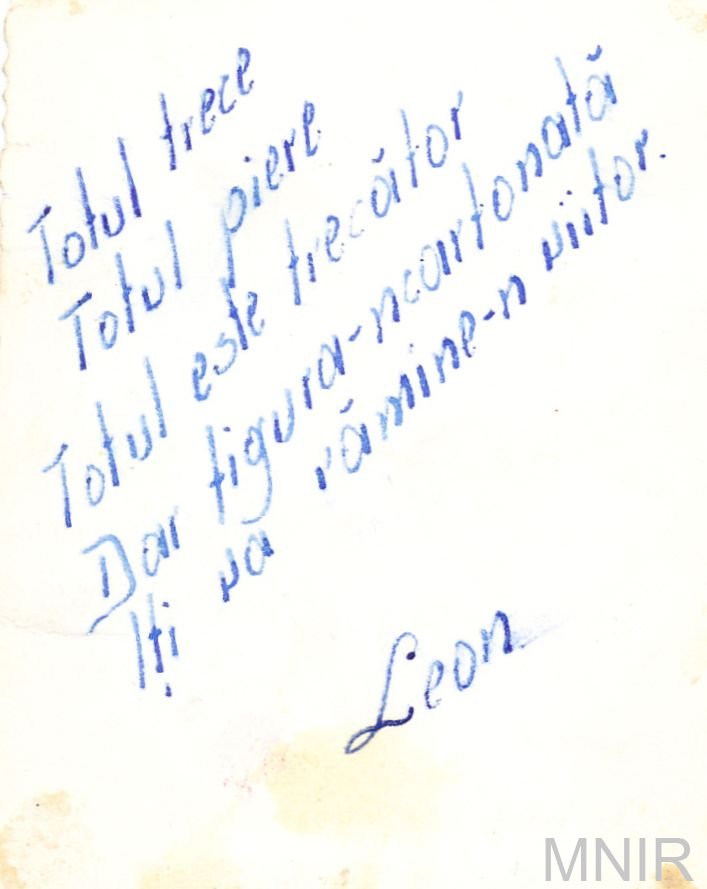 Totul trece
Totul piere
Totul este trecător
Dar figura-ncartonată
Iți va rămine-n viitor.
Leon
MNIR